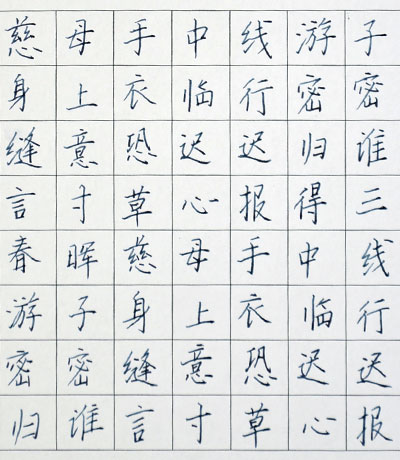 慈母手中线游子
身上衣临行密密
缝意恐迟迟归谁
言寸草心报得三
春晖慈母手中线
游子身上衣临行
密密缝意恐迟迟
归谁言寸草心报